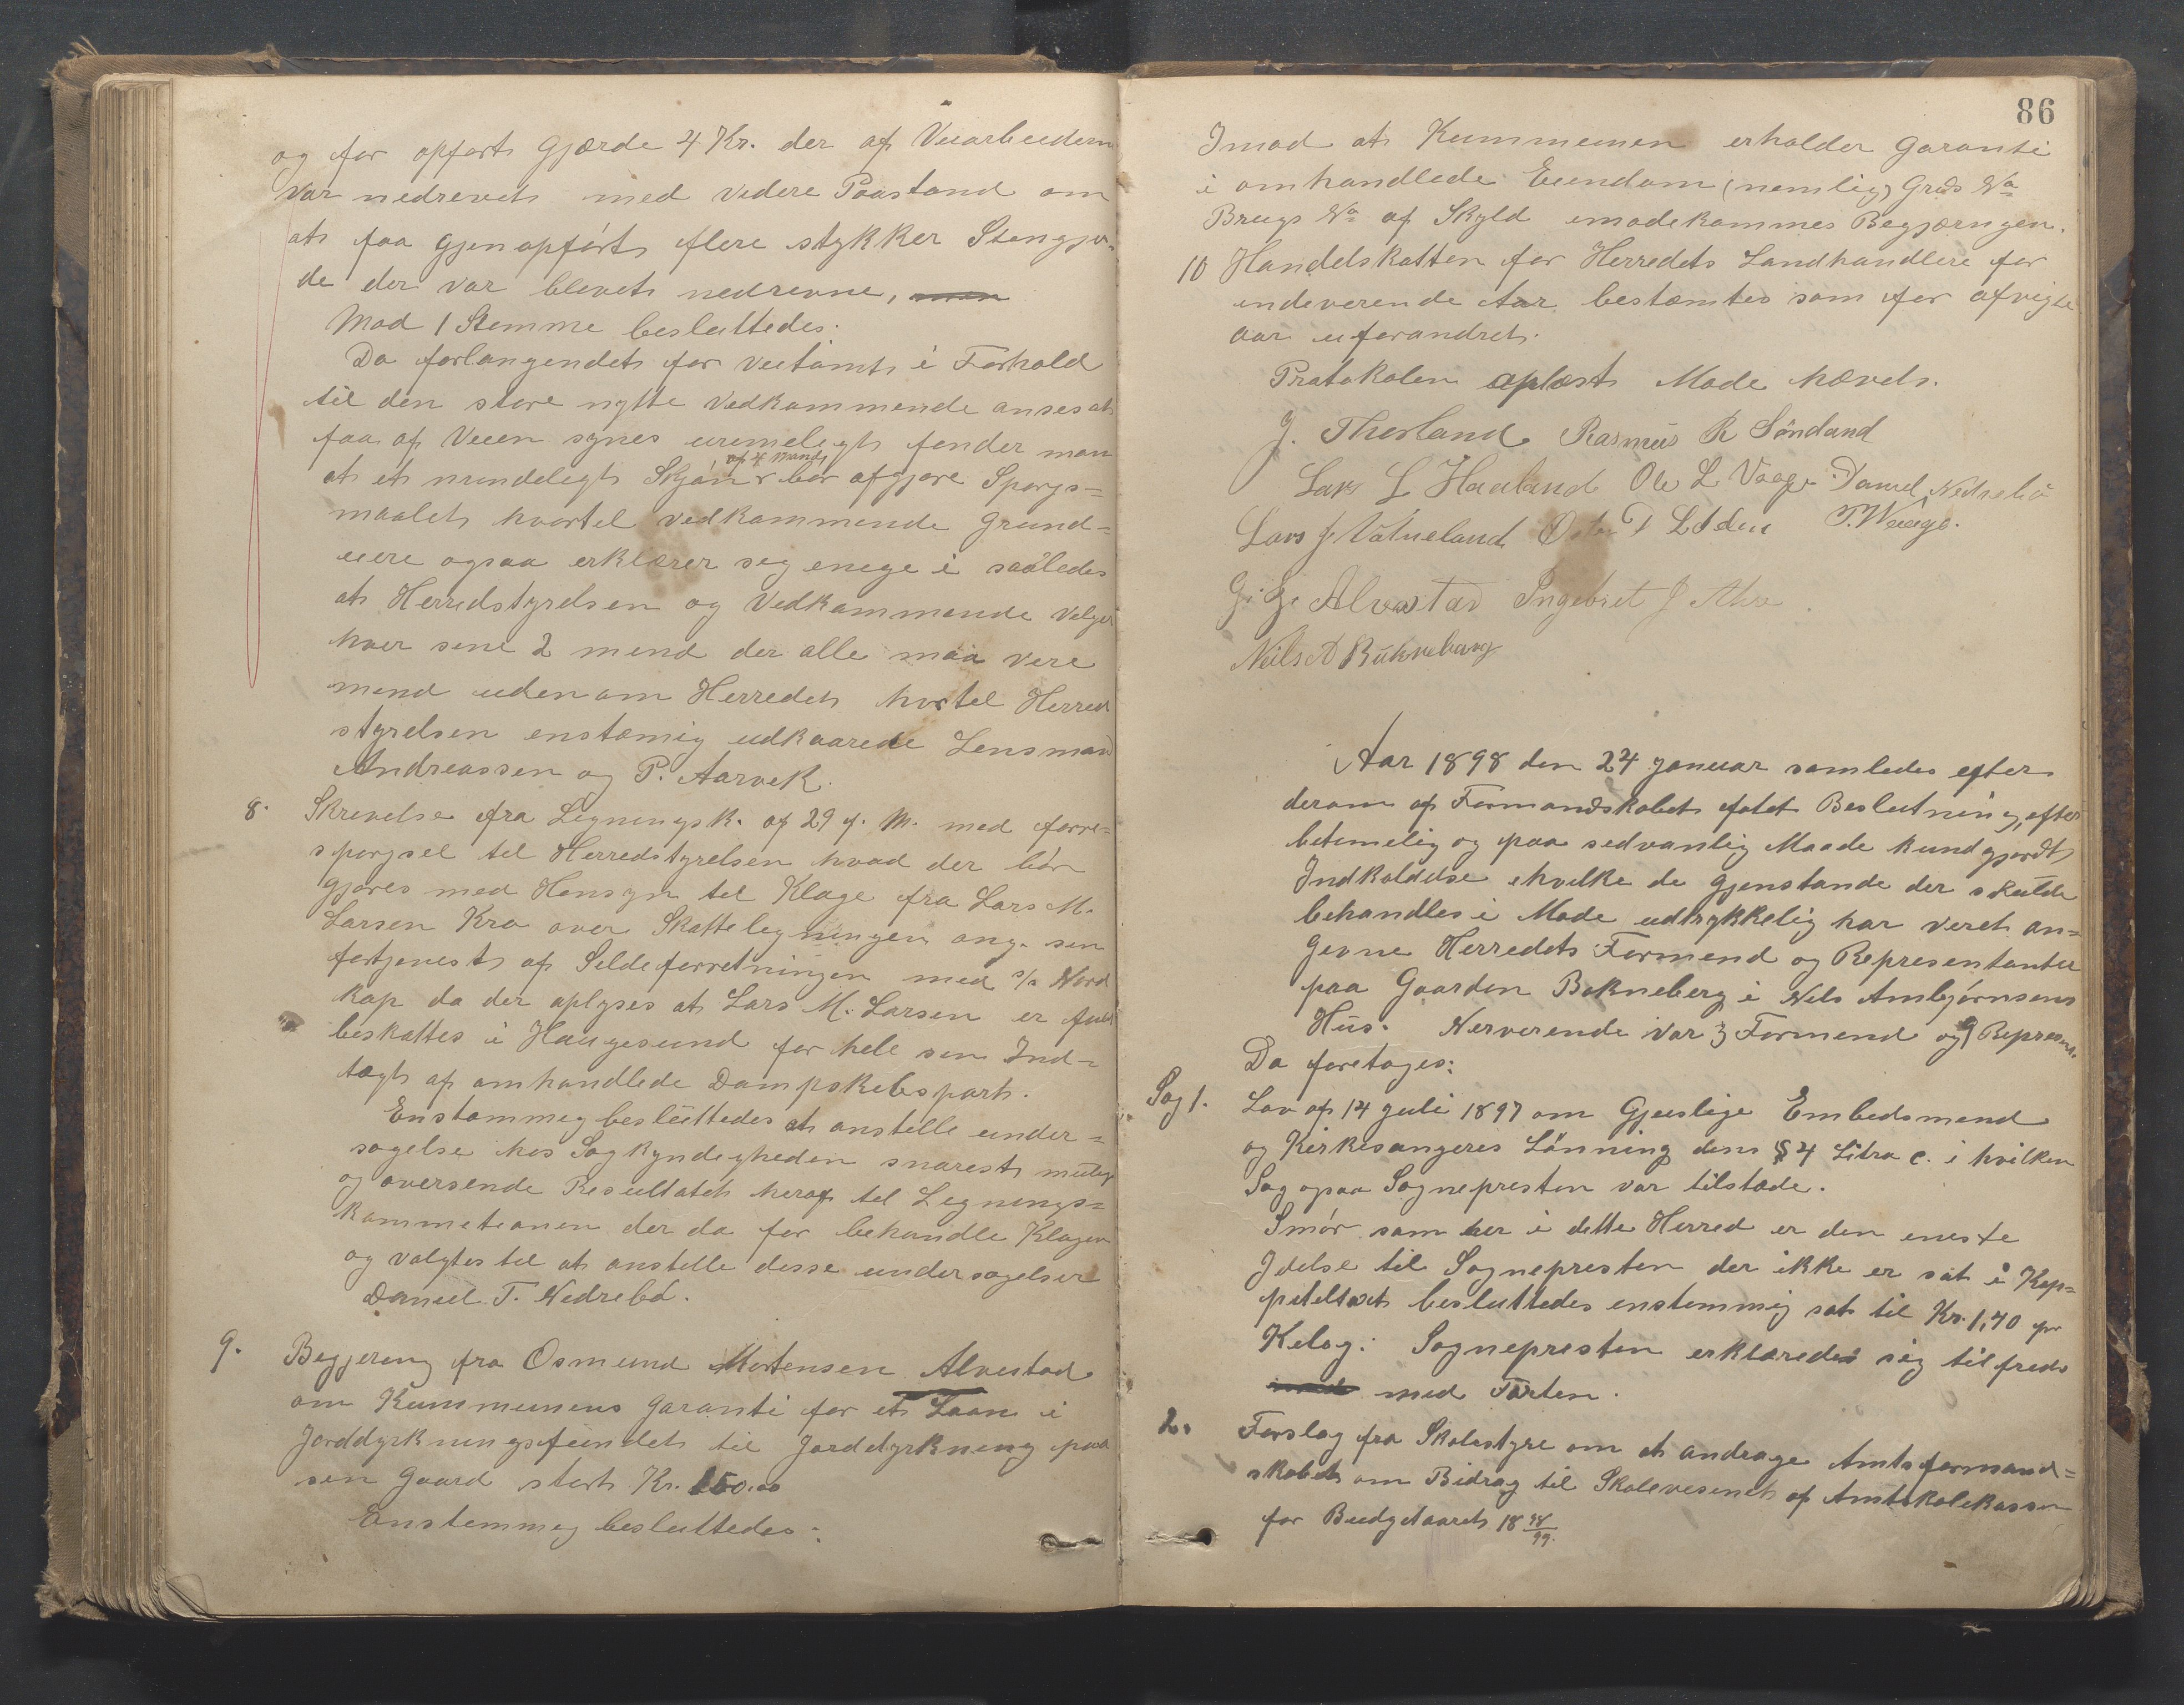 og for opført Gjærde 4 Kr. der af Veiarbeidern
var nedrevet med videre Paastand om
at faa gjenopført flere stykker Stengjer-
de der var blevet nedrevne, men
Mod 1 Stemme besluttedes:
Da forlangendet for veitomt i Forhold
til den store nytte Vedkommende anses at
faa af Veien synes urimeligt finder man
af 4 Mand
at et mindeligt Skjøn bør afgjøre Spørgs=
maalet hvortil vedkommende Grund=
eiere ogsaa erklærer sig enige i saaledes
at Herredstyrelsen og Vedkommende Velger
hver sine 2 mend der alle maa vere
mend udenom Herredet hvortil Herred
styrelsen enstemig udkaarede Lensmand
Andreassen og P. Aarvek.
8. Skrivelse fra Ligningsk. af 29 f. M. med forre=
spørgsel til Herredstyrelsen hvad der bør
gjøres med Hensyn til Klage fra Lars M.
Larsen Kro over Skatteligningen ang. sin
fortjeneste af Sildeforretningen med s/s Nord
kap da der oplyses at Lars M. Larsen er fuld
beskattes i Haugesund for hele sin Ind=
tægt af omhandlede Dampskibspart.
Enstemmig besluttedes at anstille under=
søgelse hos Sagkyndigheden snarest mulig
og oversende Resultatet heraf til Lignings=
kommisionen der da for behandle Klagen
og valgtes til at anstille disse undersøgelser
Daniel T. Nedrebø.
9. Begjering fra Osmund Mortensen Alvestad
om Kummunens Garanti for et Laan i
Jorddyrkningsfundet til Jorddyrkning paa
sin Gaard stort Kr. 150.00
Enstemmig besluttedes:
86
Imod at Kummunen erholder Garanti
i omhandlede Eiendom (nemlig) Grds No
Brugs No af Skyld imødekommes Begjæringen.
10 Handelskatten for Herredets Landhandlere for
indeverende Aar bestemtes som for afvigte
aar uforandret.
Protokolen oplæst Møde hævet.
J. Thorland Rasmus R Søndand
Lars L Haaland Ole L Vaage Daniel Nedrebø
Lars J Vatneland D Lådin T. Waage.
G. G. Alvestad Ingebret J Are.
Neils A Bukneberg
Aar 1898 den 24 Januar samledes efter
derom af Formandskabet fatet Beslutning, efter
betimelig og paa sedvanlig Maade kundgjordt
Indkaldelse i hvilke de Gjenstande der skulde
behandles i Møde udtrykkelig har veret an=
givne Herredets Formend og Representanter
paa Gaarden Bokneberg i Nels Ambjørnsens
Hus. Nerverende var 3 Formend og 9 Represent.
Da foretoges:
Sag 1. Lov af 14 Juli 1897 om Gjeislige Embedsmend
og Kirkesangeres Lønning dens § 4 Litra c. i hvilken
Sag ogsaa Sognepresten var tilstede.
Smør som her i dette Herred er den eneste
Ydelse til Sognepresten der ikke er sat i Kap=
pitelstaxt besluttedes enstemmig sat til Kr. 1,40 pr
Kilog. Sognepresten erklæredes sig tilfreds
med Taxten.
2. Forslag fra Skolestyre om at andrage Amtsformand=
skabet om Bidrag til Skolevesenet af Amtskolekassen
for Budgetaaret 18 98/99.